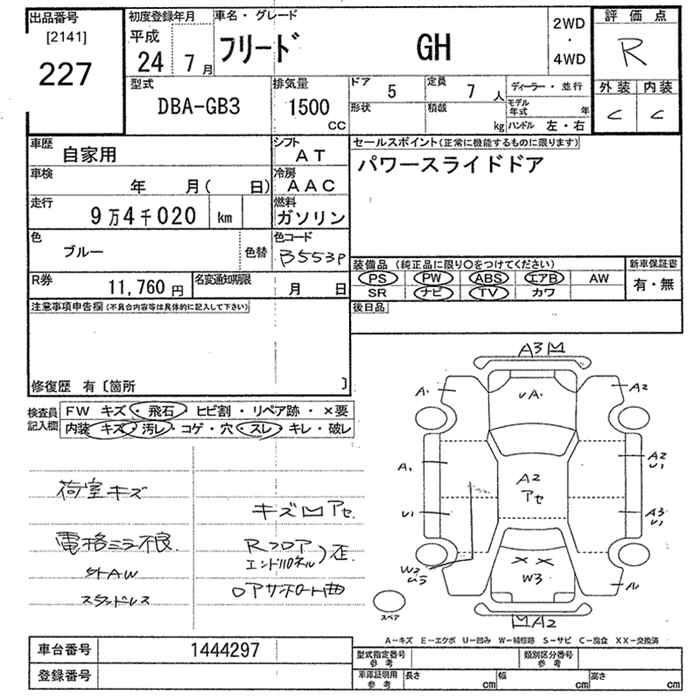 出品番号
[2141]
227
初度登録年月
平成
24 7月
車名・グレード
フリード GH
2WD
・
4WD
評価点
R
外装 内装
C C
型式
DBA-GB3
排気量
1500
CC
ドア 5
定員 7人
ディーラー・並行
形状
積載 kg
モデル年式 年
ハンドル 左・右
車歴
自家用
シフト
AT
車検
年 月( 日)
冷房
AAC
走行
9万4千020 km
燃料
ガソリン
色
ブルー
色替
色コード
B553P
R券
11,760円
名変通知期限
月 日
セールスポイント(正常に機能するものに限ります)
パワースライドドア
装備品(純正品に限り○をつけてください)
新車保証書
PS PW ABS エアB AW
SR ナビ TV カワ
有・無
後日品
注意事項申告欄(不具合内容等は具体的に記入して下さい)
修復歴 有〔箇所 〕
検査員記入欄
FW キズ・飛石・ヒビ割・リペア跡・×要
内装 キズ・汚レ・コゲ・穴・スレ・キレ・破レ
荷室キズ
電格ミラー不良
外AW
スタッドレス
キズ凹アセ
Rフロア
エンドパネル)歪
ロアサポート曲
A3凹
A1
UA1
A2
A1
A2
U1
A2
アセ
U1
A3
U1
W2
U3
××
W3
ル
凹A2
スペア
A-キズ E-エクボ U-凹み W-補修跡 S-サビ C-腐食 XX-交換済
車台番号 1444297
登録番号
型式指定番号
参考
類別区分番号
参考
車庫証明用
参考
長さ cm
幅 cm
高さ cm